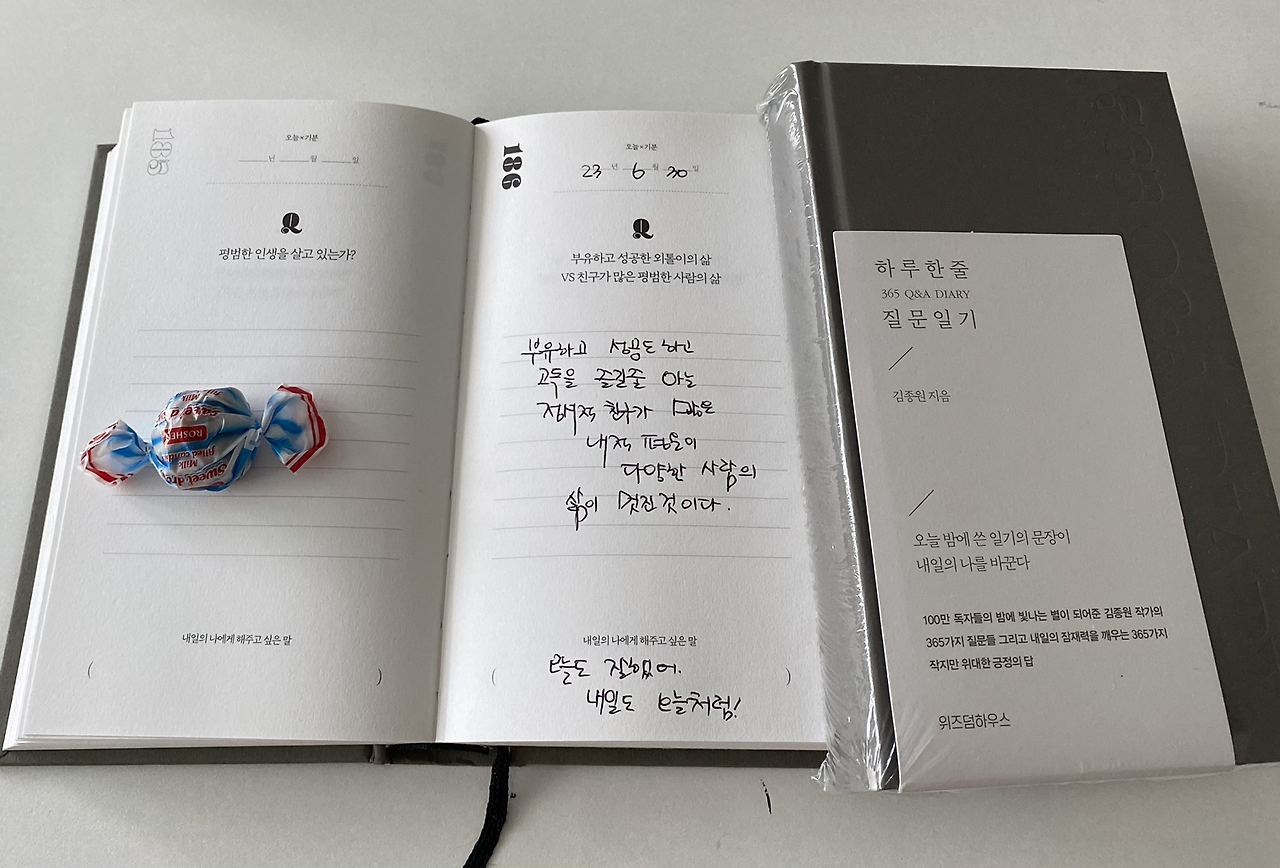 185
오늘×기분
년 월 일
Q
평범한 인생을 살고 있는가?
내일의 나에게 해주고 싶은 말
( )
ROSHEN
Milk
filled candy
Sweet
186
오늘×기분
23년 6월 30일
Q
부유하고 성공한 외톨이의 삶
VS 친구가 많은 평범한 사람의 삶
부유하고 성공도 하고
고독을 즐길줄 아는
정서적 친구가 많은
내적 평온이
다양한 사람의
삶이 멋진 것이다.
내일의 나에게 해주고 싶은 말
( )
오늘도 잘했어.
내일도 오늘처럼!
하루한줄
365 Q&A DIARY
질문일기
김종원 지음
오늘 밤에 쓴 일기의 문장이
내일의 나를 바꾼다
100만 독자들의 밤에 빛나는 별이 되어준 김종원 작가의
365가지 질문들 그리고 내일의 잠재력을 깨우는 365가지
작지만 위대한 긍정의 답
위즈덤하우스